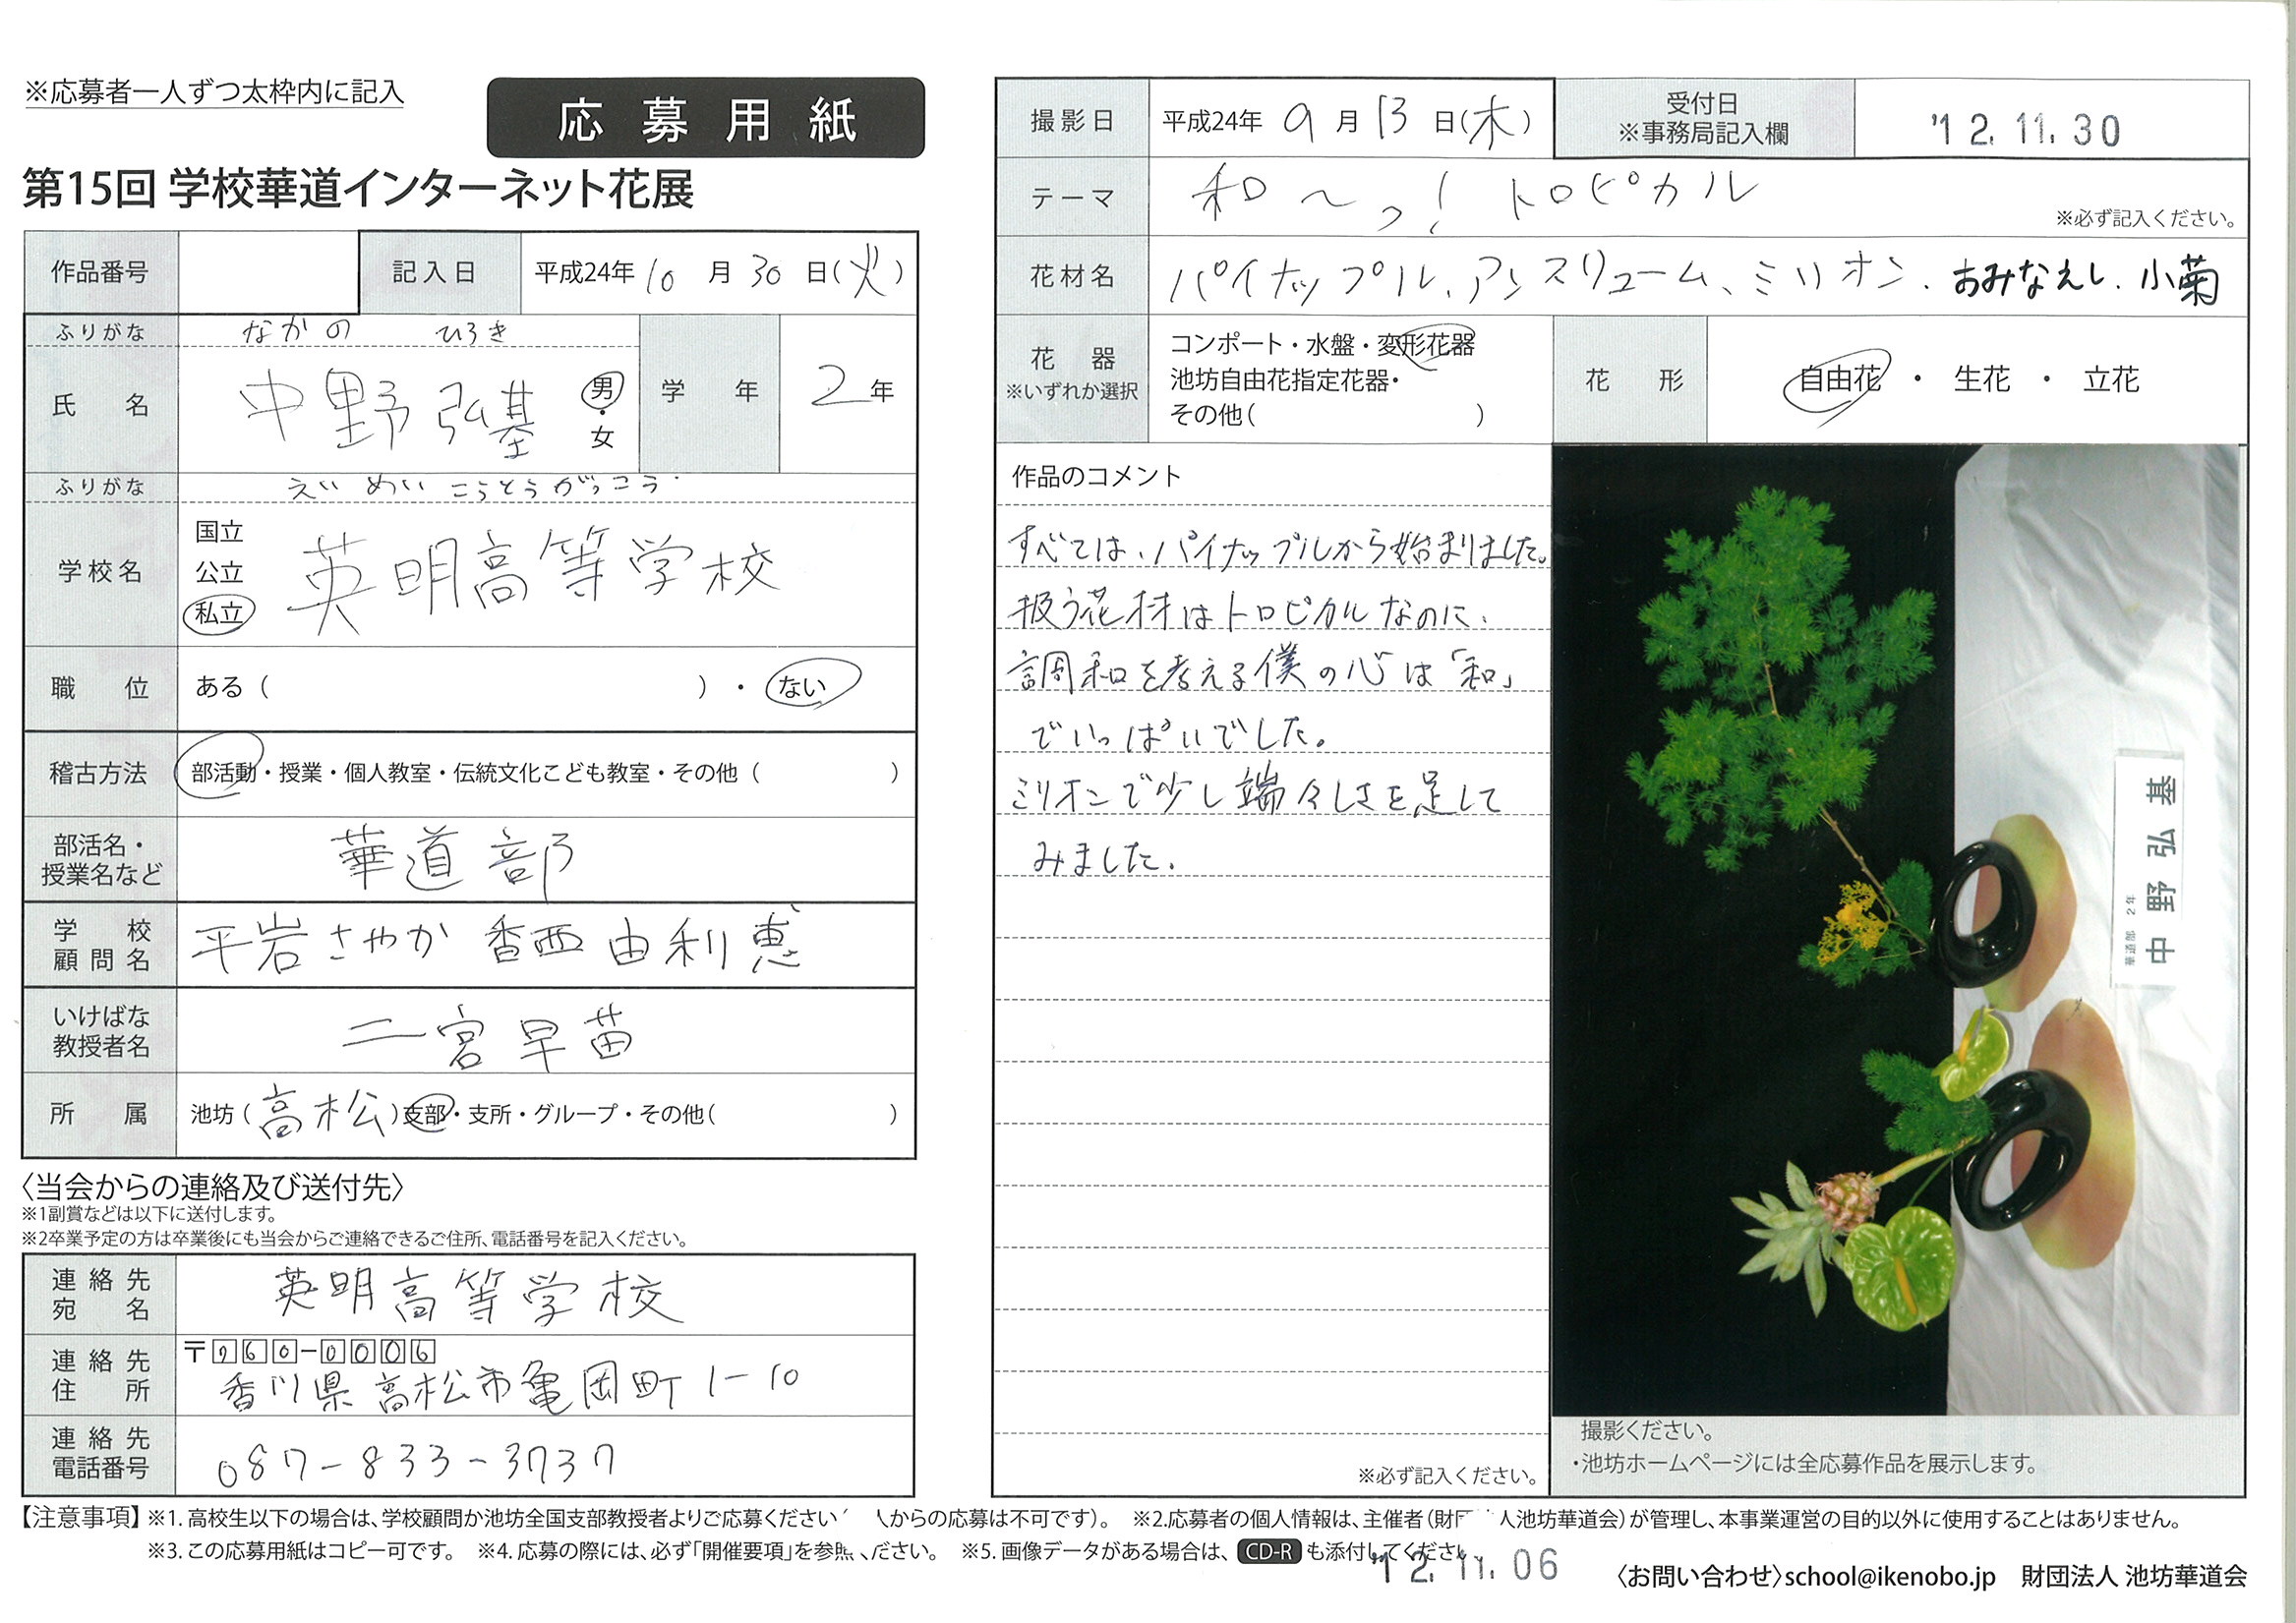 ※応募者一人ずつ太枠内に記入
応募用紙
第15回 学校華道インターネット花展
作品番号
記入日 平成24年10月30日(火)
ふりがな なかの ひろき
氏名 中野弘基 男・女 学年 2年
ふりがな えいめいこうとうがっこう
学校名 国立 公立 私立 英明高等学校
職位 ある( )・ない
稽古方法 部活動・授業・個人教室・伝統文化こども教室・その他( )
部活名・授業名など 華道部
学校顧問名 平岩さやか 香西由利恵
いけばな教授者名 二宮早苗
所属 池坊(高松)支部・支所・グループ・その他( )
〈当会からの連絡及び送付先〉
※1副賞などは以下に送付します。
※2卒業予定の方は卒業後にも当会からご連絡できるご住所、電話番号を記入ください。
連絡先宛名 英明高等学校
連絡先住所 〒760-0006
香川県高松市亀岡町1-10
連絡先電話番号 087-833-3737
撮影日 平成24年9月13日(木)
受付日 ※事務局記入欄 '12.11.30
テーマ 和〜っ! トロピカル
※必ず記入ください。
花材名 パイナップル、アンスリューム、ミリオン、おみなえし、小菊
花器 ※いずれか選択
コンポート・水盤・変形花器
池坊自由花指定花器・
その他( )
花形 自由花・生花・立花
作品のコメント
すべては、パイナップルから始まりました。
扱う花材はトロピカルなのに、
調和を考える僕の心は「和」
でいっぱいでした。
ミリオンで少し端々しさを足して
みました。
※必ず記入ください。
華道部 2年
中野弘基
撮影ください。
・池坊ホームページには全応募作品を展示します。
【注意事項】※1. 高校生以下の場合は、学校顧問か池坊全国支部教授者よりご応募ください 人からの応募は不可です)。 ※2.応募者の個人情報は、主催者(財団 人池坊華道会)が管理し、本事業運営の目的以外に使用することはありません。
※3. この応募用紙はコピー可です。 ※4. 応募の際には、必ず「開催要項」を参照ください。 ※5. 画像データがある場合は、CD-Rも添付してください。
'12.11.06
〈お問い合わせ〉school@ikenobo.jp 財団法人 池坊華道会